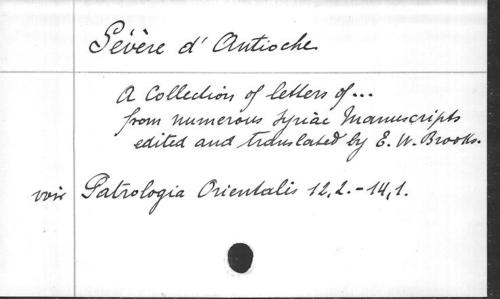 Sévère d'Antioche
A Collection of letters of...
from numerous Syriac Manuscripts
edited and translated by E. W. Brooks.
voir Patrologia Orientalis 12,2.-14,1.